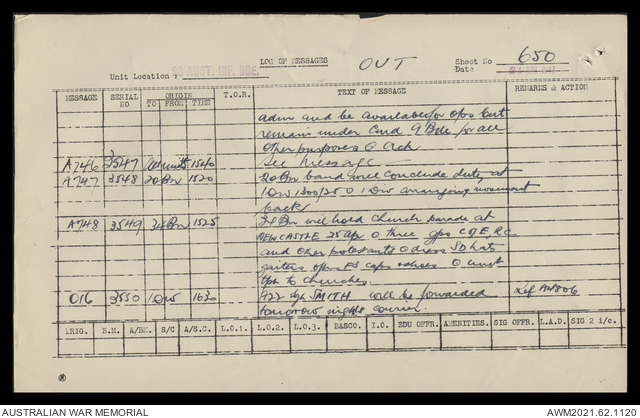 LOG OF MESSAGES OUT Sheet No 650
Unit Location : AUST. INF. BDE. Date
MESSAGE SERIAL NO ORIGIN TO FROM TIME T.O.R. TEXT OF MESSAGE REMARKS & ACTION
adm and be available for ops but
remain under Comd 9 Bde for all
other purposes @ Ack
A746 3547 All units 1540 See message
A747 3548 20 Bn 1520 20 Bn band will conclude duty at
1 Div 1300/25 O 1 Div arranging movement
back
A748 3549 1525 Bn will hold church parade at
NEWCASTLE 25 Apr O three gps C of E, R.C
and other protestants O dress SD hats
gaiters
to churches.
O16 3550 1 Div 1630 SMITH will be forwarded
tomorrow nights courier.
BRIG. B.M. S/C A/S.C. L.O.1. L.O.2. L.O.3. BASCO. I.O. EDU OFFR. AMENITIES. SIG OFFR. L.A.D. SIG 2 i/c.
AUSTRALIAN WAR MEMORIAL AWM2021.62.1120